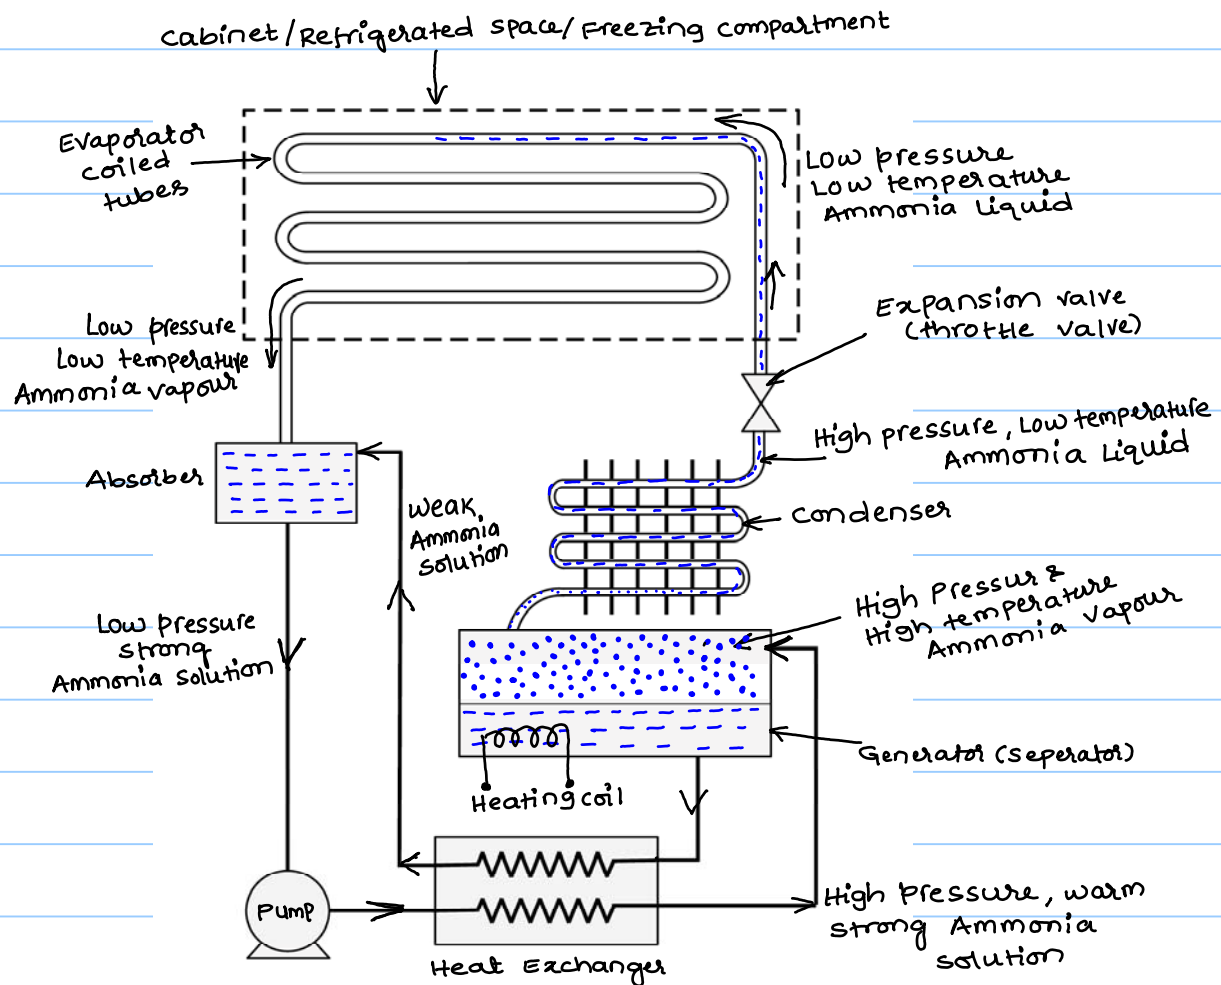 Cabinet/Refrigerated space/Freezing compartment
Evaporator
coiled
tubes
Low pressure
Low temperature
Ammonia Liquid
Expansion valve
(throttle valve)
Low pressure
Low temperature
Ammonia vapour
High pressure, Low temperature
Ammonia Liquid
Absorber
Weak,
Ammonia
solution
Condenser
High Pressur &
High temperature
Ammonia vapour
Low pressure
strong
Ammonia solution
Generator (seperator)
Heating coil
Pump
High pressure, warm
strong Ammonia
solution
Heat Exchanger